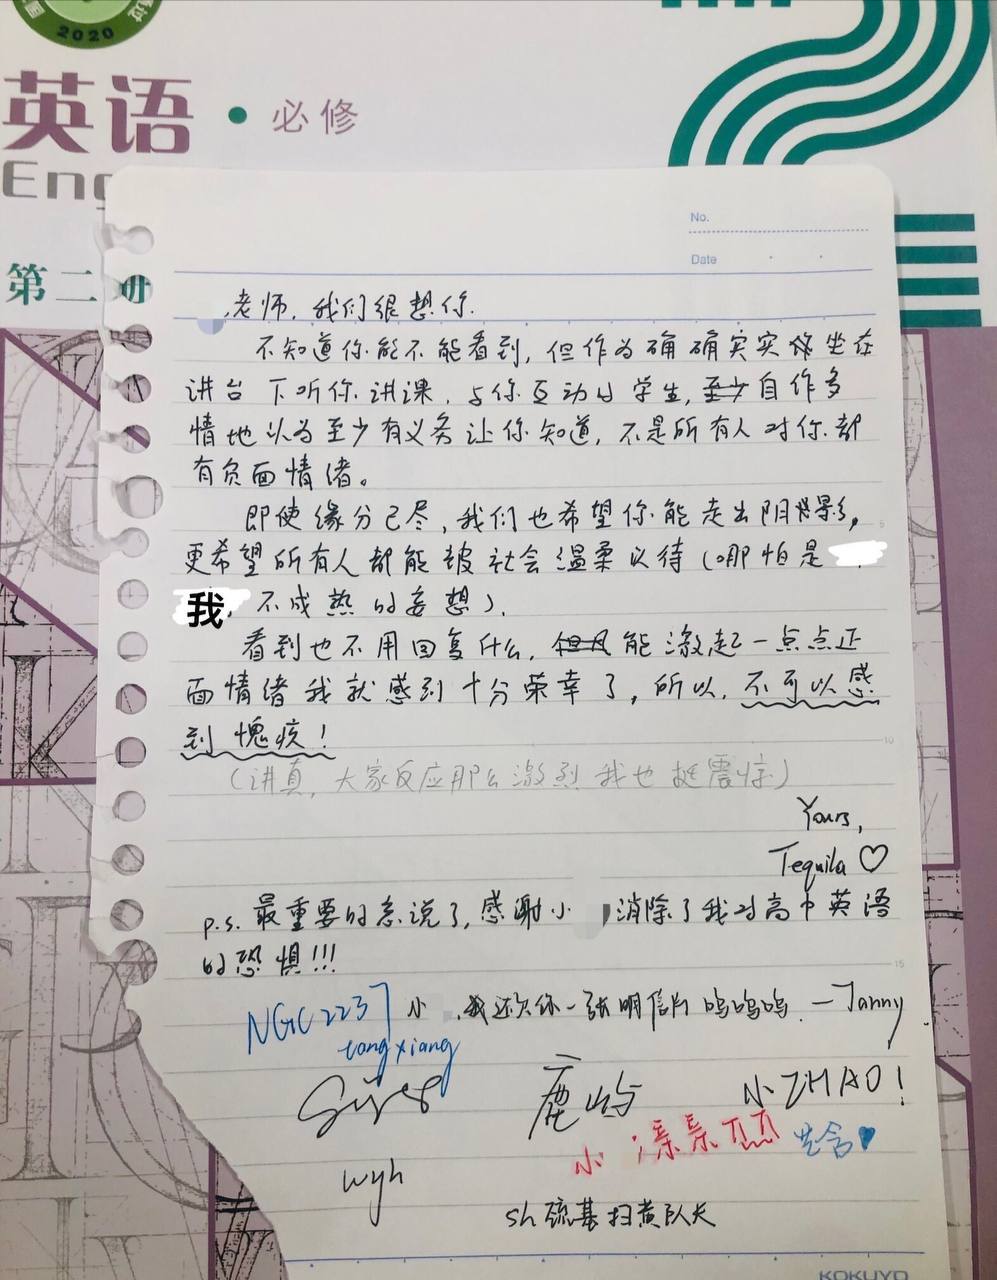 2020
英语·必修
Eng
第二册
No.
Date
老师，我们很想你.
不知道你能不能看到，但作为确确实实坐在
讲台下听你讲课，与你互动的学生，至少自作多
情地以为至少有义务让你知道，不是所有人对你都
有负面情绪。
即使缘分已尽，我们也希望你能走出阴影，
更希望所有人都能被社会温柔以待（哪怕是
我 不成熟的妄想）.
看到也不用回复什么，但凡能激起一点点正
面情绪我就感到十分荣幸了，所以，不可以感
到愧疚！
（讲真，大家反应那么激烈我也挺震惊）
Yours,
Tequila ♡
p.s. 最重要的忘说了，感谢小 消除了我对高中英语
的恐惧!!!
NGC2237 小 ，我还欠你一张明信片呜呜呜 —Janny
tangxiang
鹿屿 小ZHAO！
小
wyh
sh巯基扫黄队长
5
10
15
KOKUYO